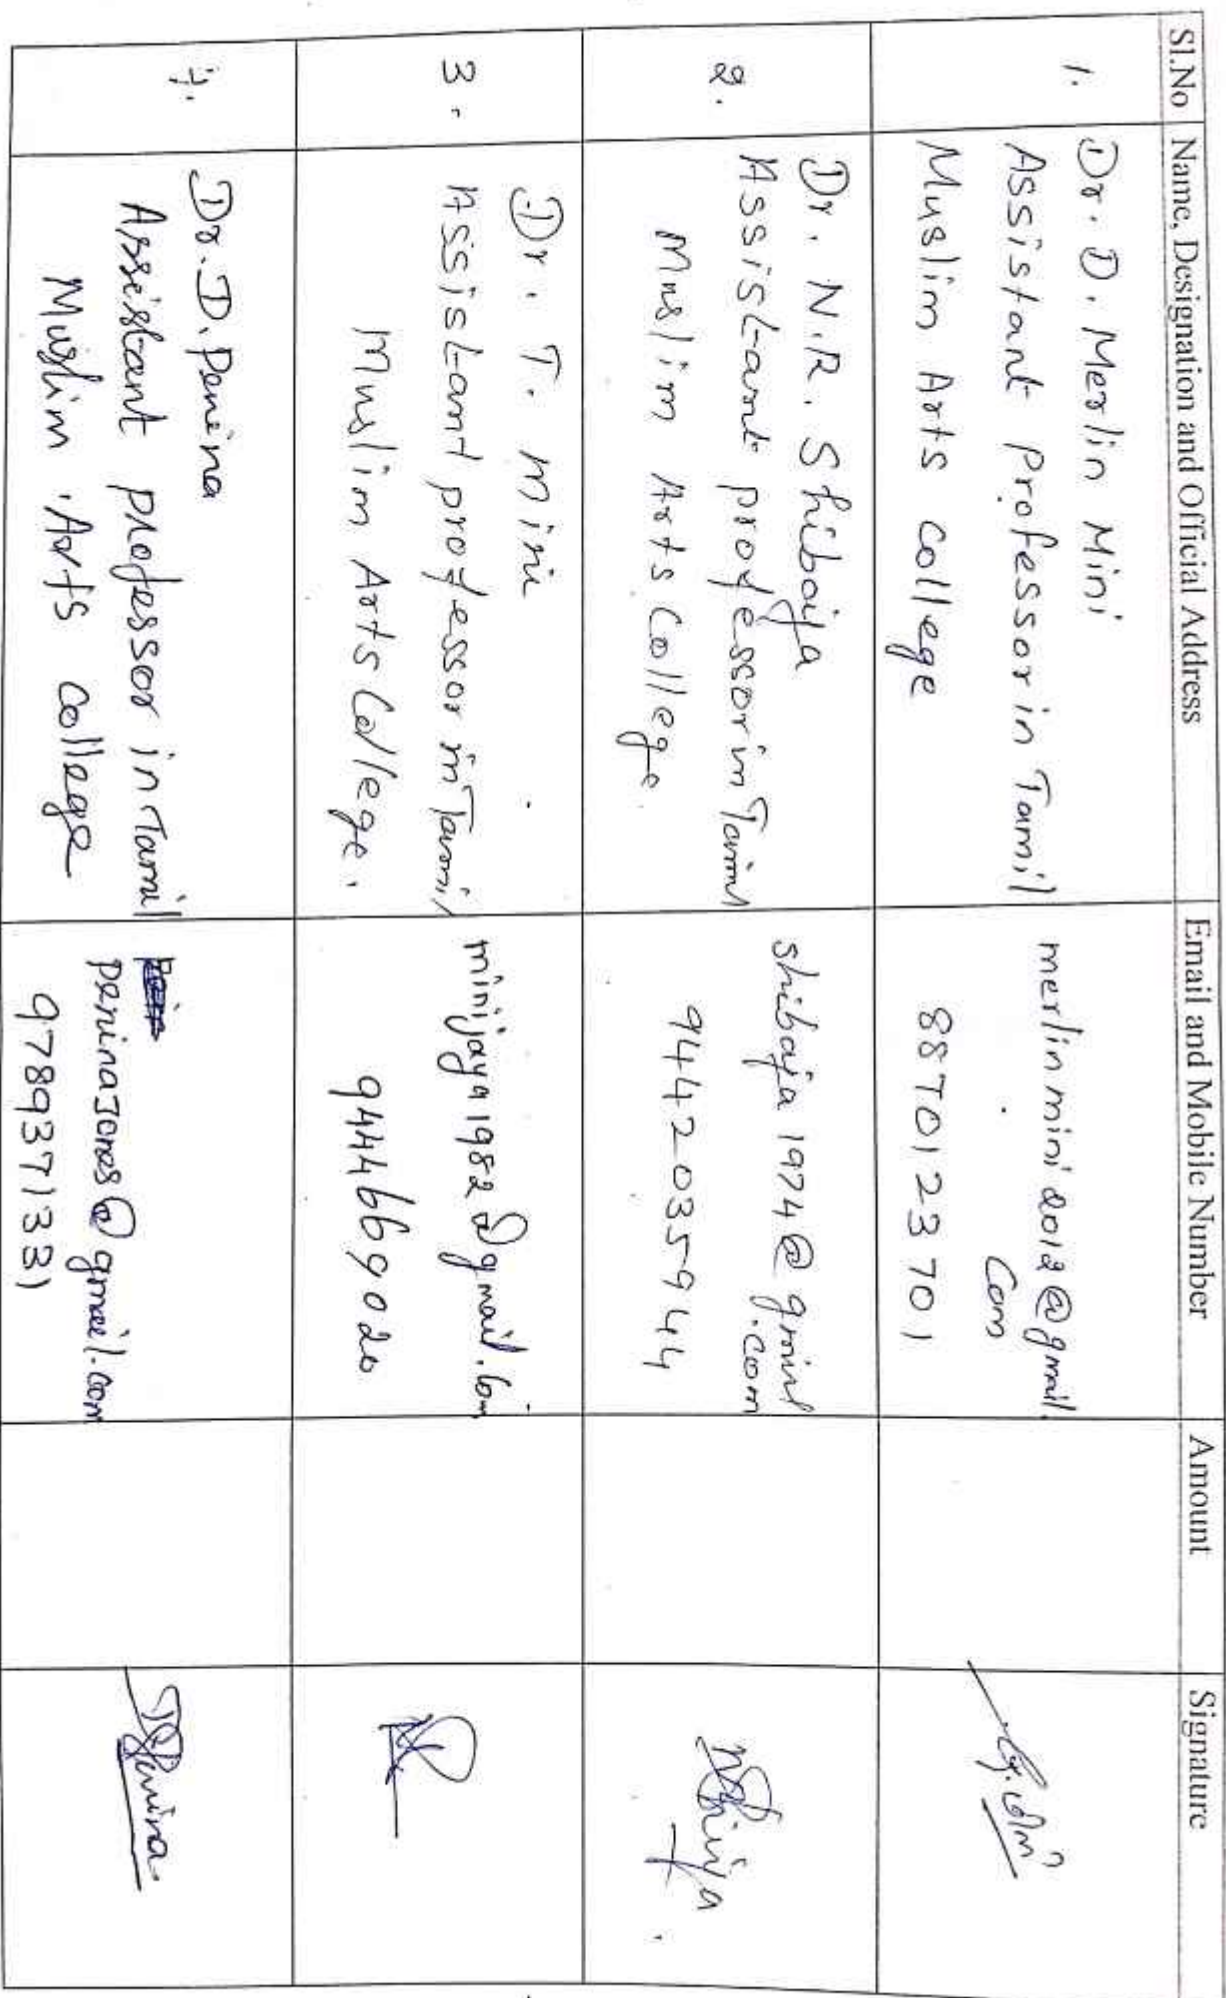 Sl.No Name, Designation and Official Address Email and Mobile Number Amount Signature
1.
Dr. D. Merlin Mini
Assistant Professor in Tamil
Muslim Arts college
merlinmini2012@gmail.
com
8870123701
2.
Dr. N.R. Shibaja
Assistant professor in Tamil
Muslim Arts College.
shibaja1974@gmail
.com
9442035944
3.
Dr. T. Mini
Assistant professor in Tamil
Muslim Arts College.
minijaya1982@gmail.com
9444669020
4.
Dr. D. Penina
Assistant professor in Tamil
Muslim Arts college
peninajones@gmail.com
9789371331
Penina